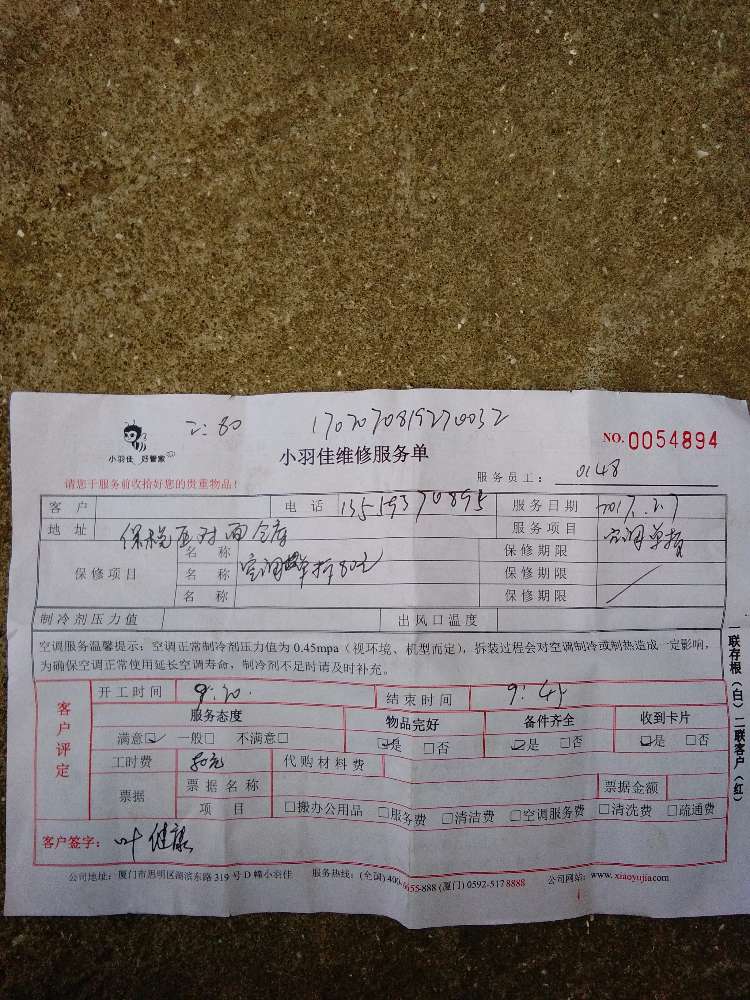 2:80 1702070819270032
小羽佳 好管家
小羽佳维修服务单
NO.0054894
服务员工: 0148
请您于服务前收拾好您的贵重物品!
客户 电话 13559370895 服务日期 2017.2.7
地址 保税区对面仓库 服务项目 空调单拆
保修项目 名称 保修期限
名称 空调单拆80元 保修期限
名称 保修期限
制冷剂压力值 出风口温度
空调服务温馨提示:空调正常制冷剂压力值为 0.45mpa(视环境、机型而定),拆装过程会对空调制冷或制热造成一定影响,
为确保空调正常使用延长空调寿命,制冷剂不足时请及时补充。
客户评定
开工时间 9:20. 结束时间 9:45
服务态度 物品完好 备件齐全 收到卡片
满意☑ 一般□ 不满意□ ☑是 □否 ☑是 □否 ☑是 □否
工时费 80元 代购材料费
票据 票据名称 票据金额
项目 □搬办公用品 □服务费 □清洁费 □空调服务费 □清洗费 □疏通费
客户签字: 叶健康
公司地址:厦门市思明区湖滨东路 319 号 D 幢小羽佳 服务热线:(全国) 400-6655-888 (厦门) 0592-5178888 公司网站:www.xiaoyujia.com
一联存根(白)二联客户(红)